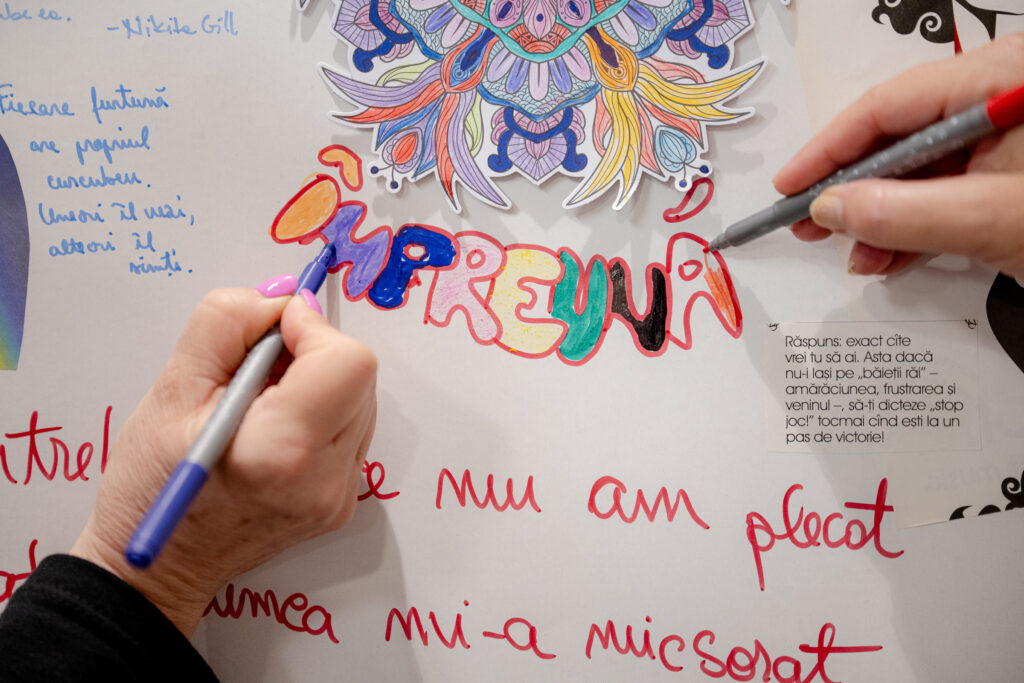 -Nikita Gill
Fiecare furtună
are propriul
curcubeu.
Uneori îl vezi,
alteori îl
simți.
ÎMPREUNĂ
Răspuns: exact cîte
vrei tu să ai. Asta dacă
nu-i lași pe „băieții răi” –
amărăciunea, frustrarea și
veninul –, să-ți dicteze „stop
joc!” tocmai cînd ești la un
pas de victorie!
nu am plecat
umea mi-a micsorat